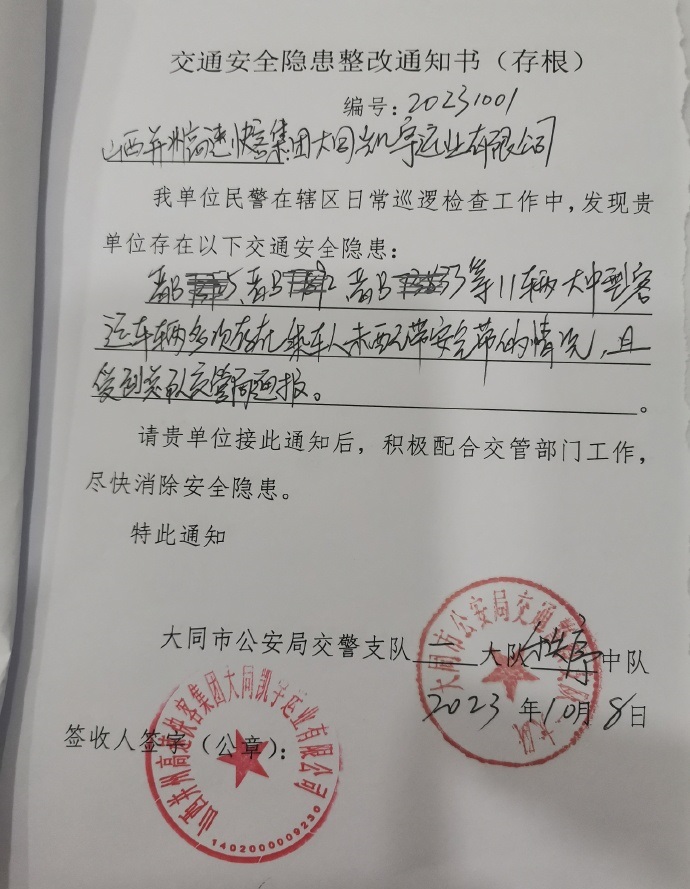 交通安全隐患整改通知书（存根）
编号：20231001
山西并州高速快客集团大同凯宇运业有限公司
我单位民警在辖区日常巡逻检查工作中，发现贵
单位存在以下交通安全隐患：
晋B 5、晋B 2 晋B 3等11车辆大中型客
运车辆多次存在乘车人未配带安全带的情况，且
受到总队交管局通报。
。
请贵单位接此通知后，积极配合交管部门工作，
尽快消除安全隐患。
特此通知
大同市公安局交警支队一大队秩序中队
2023年10月8日
签收人签字（公章）：
大同市公安局交通警 大队
山西并州高速快客集团大同凯宇运业有限公司
1402000009230